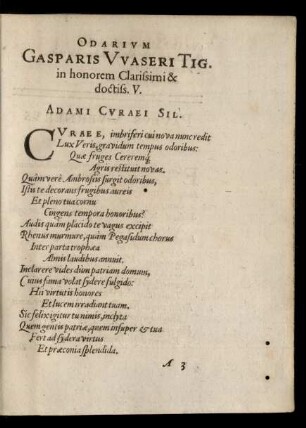 ODARIVM
GASPARIS VVASERI TIG.
in honorem Clarißimi &
doctiß. V.
ADAMI CVRAEI SIL.
CVRAEE, imbriferi cui nova nunc redit
Lux Veris, gravidum tempus odoribus:
Quæ fruges Cereremq́;
Agris restituit novas.
Quàm verè Ambrosiis surgit odoribus,
Istis te decorans frugibus aureis
Et pleno tua cornu
Cingens tempora honoribus?
Audis quàm placido te vagus excipit
Rhenus murmure, quàm Pegasidum chorus
Inter parta trophæa
Almis laudibus annuit.
Inclarere vides dum patriam domum,
Cuius fama volat sydere fulgido:
Hei virtutis honores
Et lucem irradiant tuam.
Sic felix igitur tu nimis, inclyta
Quem gentis patriæ, quem insuper & tua
Fert ad sydera virtus
Et præconia splendida.
A 3